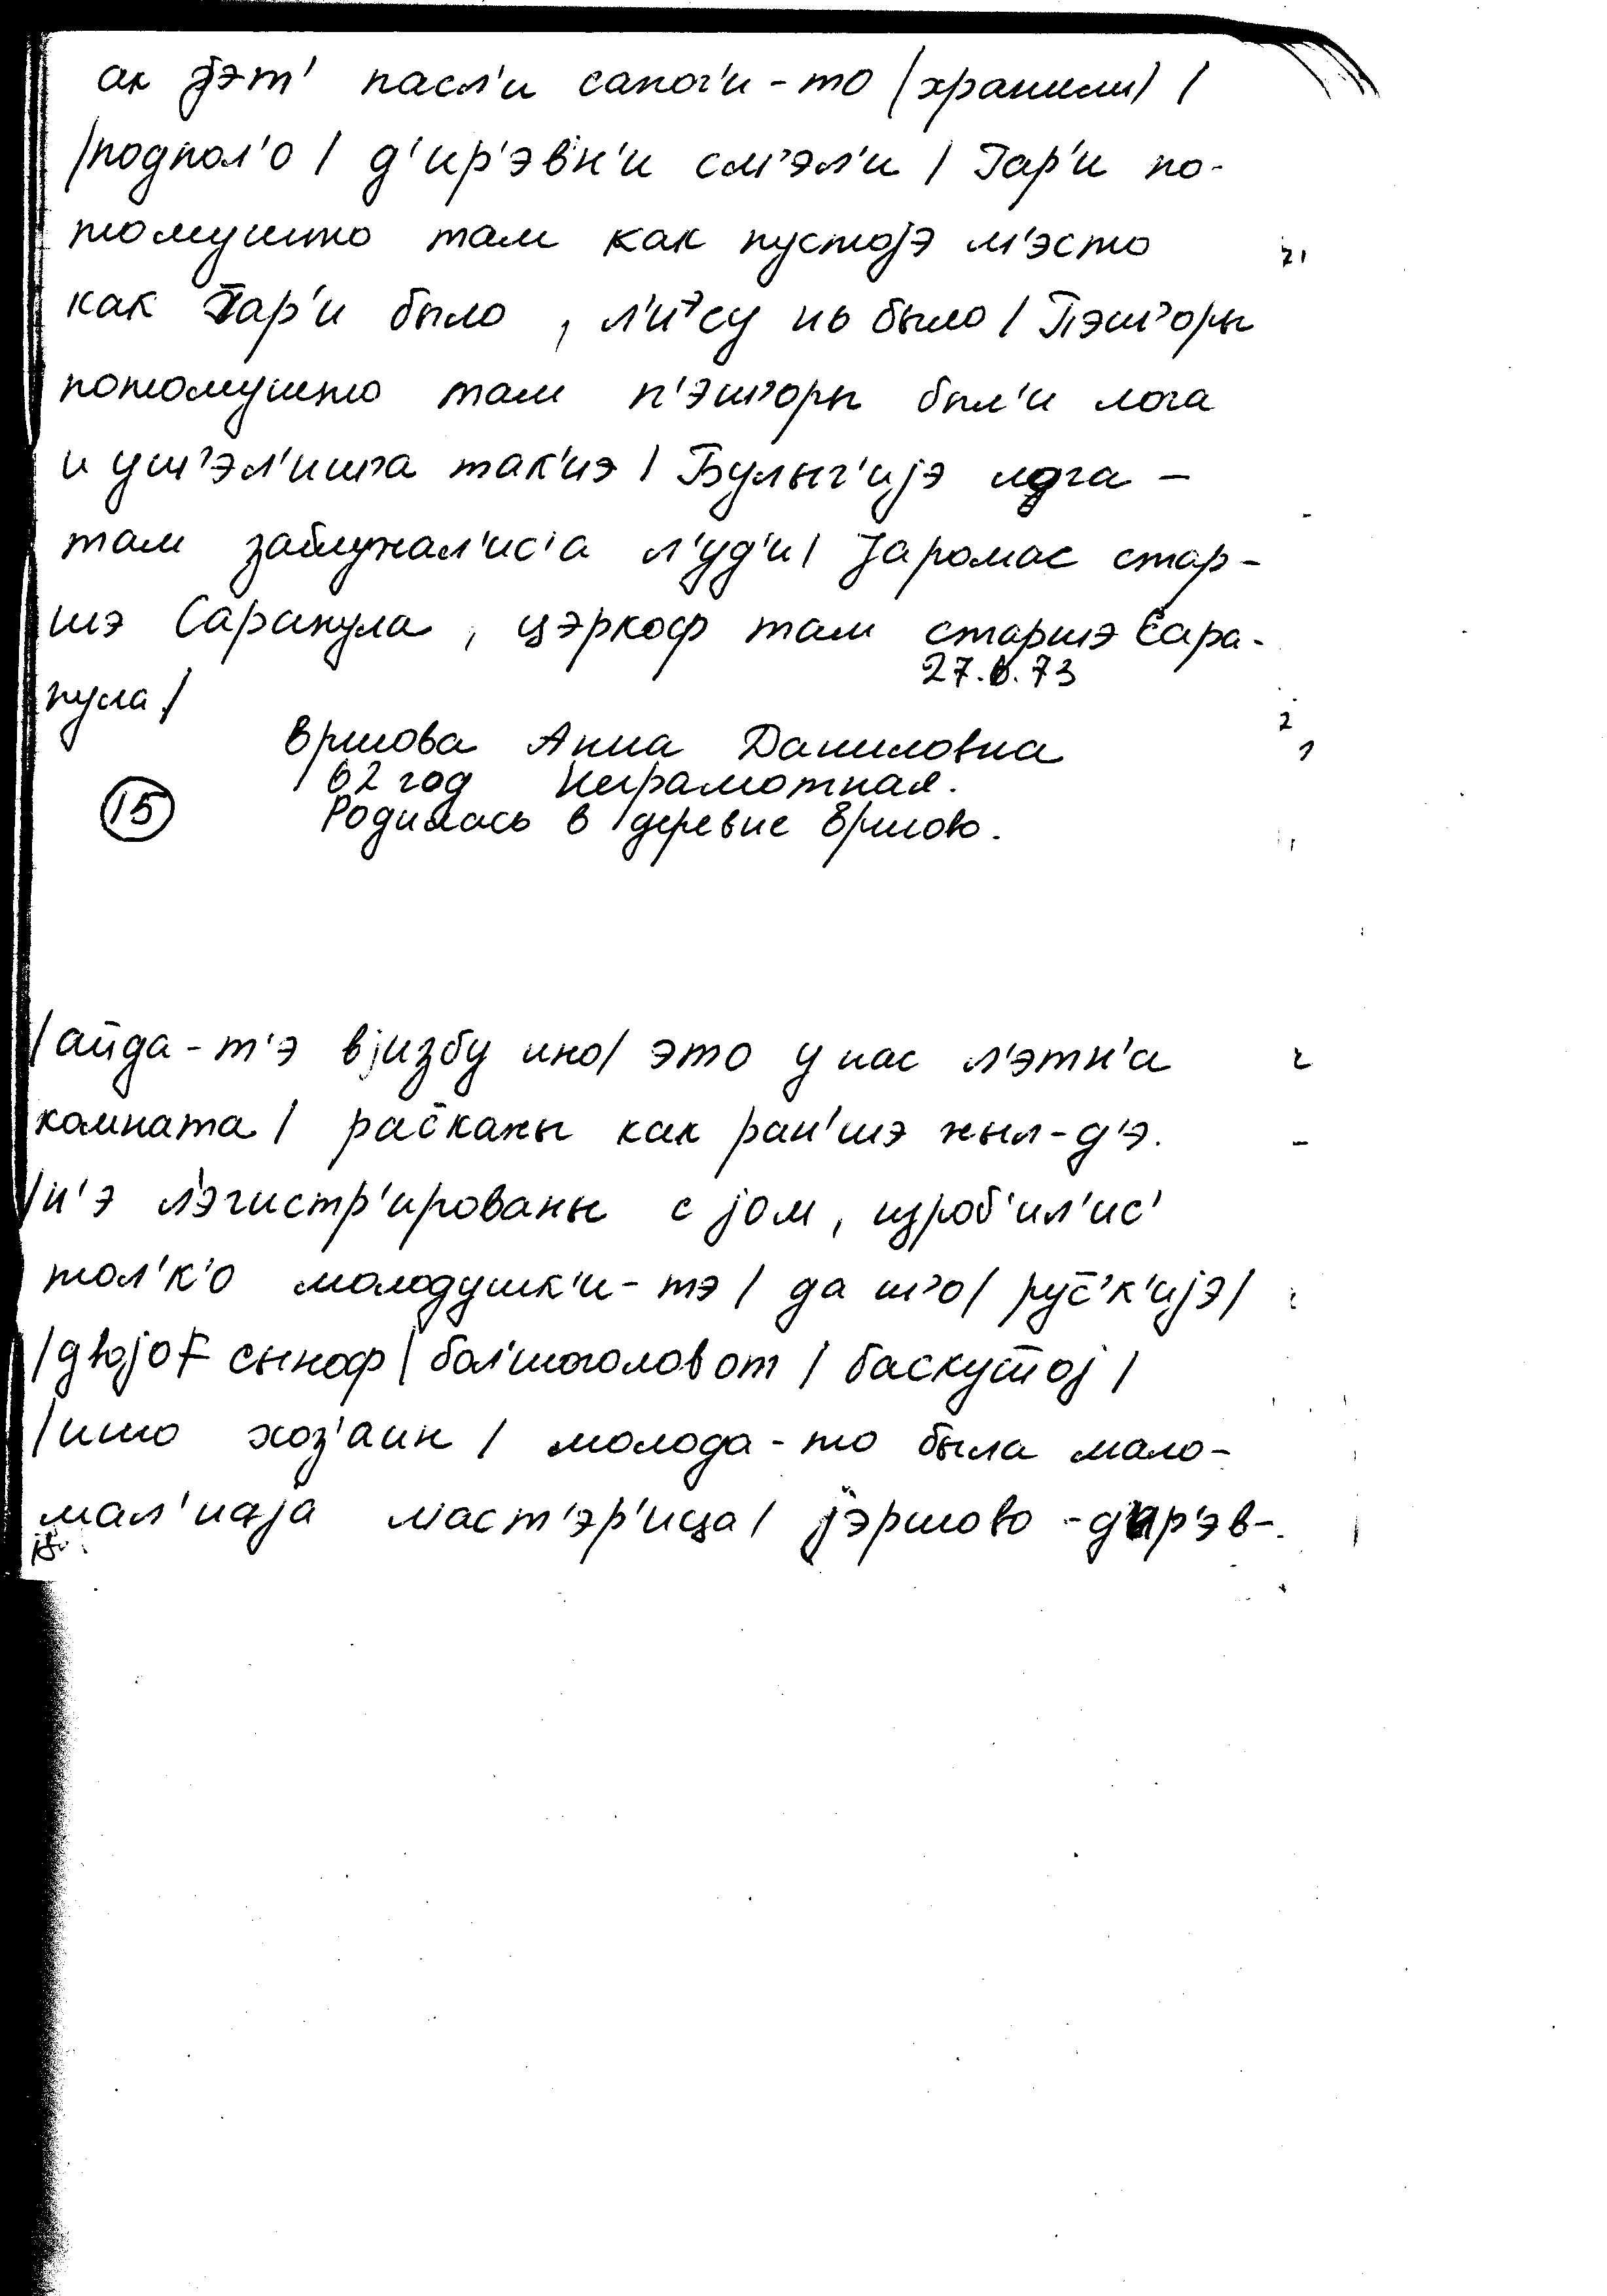 ак jэт' пасл'и сапог'и-то (хранили) /
/подпол'о / д'ир'эвн'и см'эл'и / Гар'и по-
томушто там как пустоjэ м'эсто
как Гар'и было, л'иэсу нь было / Пэш'оры
потомушто там п'эш'оры был'и лога
и уш'эл'иш'а так'иэ / Булыг'иjэ лога –
там заблужал'ис'а л'уд'и / Jаромас стар-
шэ Сарапула, цэркоф там старшэ Сара-
27.6.73
пула /
Ершова Анна Даниловна
62 год Неграмотная.
15 Родилась в деревне Ершово.
/айда-т'э вjизбу ино/ это у нас л'этн'а
комната / рас̄кажы как ран'шэ жыл-д'э.
/н'э л'эгистр'ированы с jом, изроб'ил'ис'
тол'к'о молодушк'и-тэ / да ш'о / рус̄'к'иjэ /
/двоjоF сыноф / бол'шоголовот / баскушоj /
/ишо хоз'аин / молода-то была мало-
мал'наjа маст'эр'ица / jэршово -д'ир'эв-